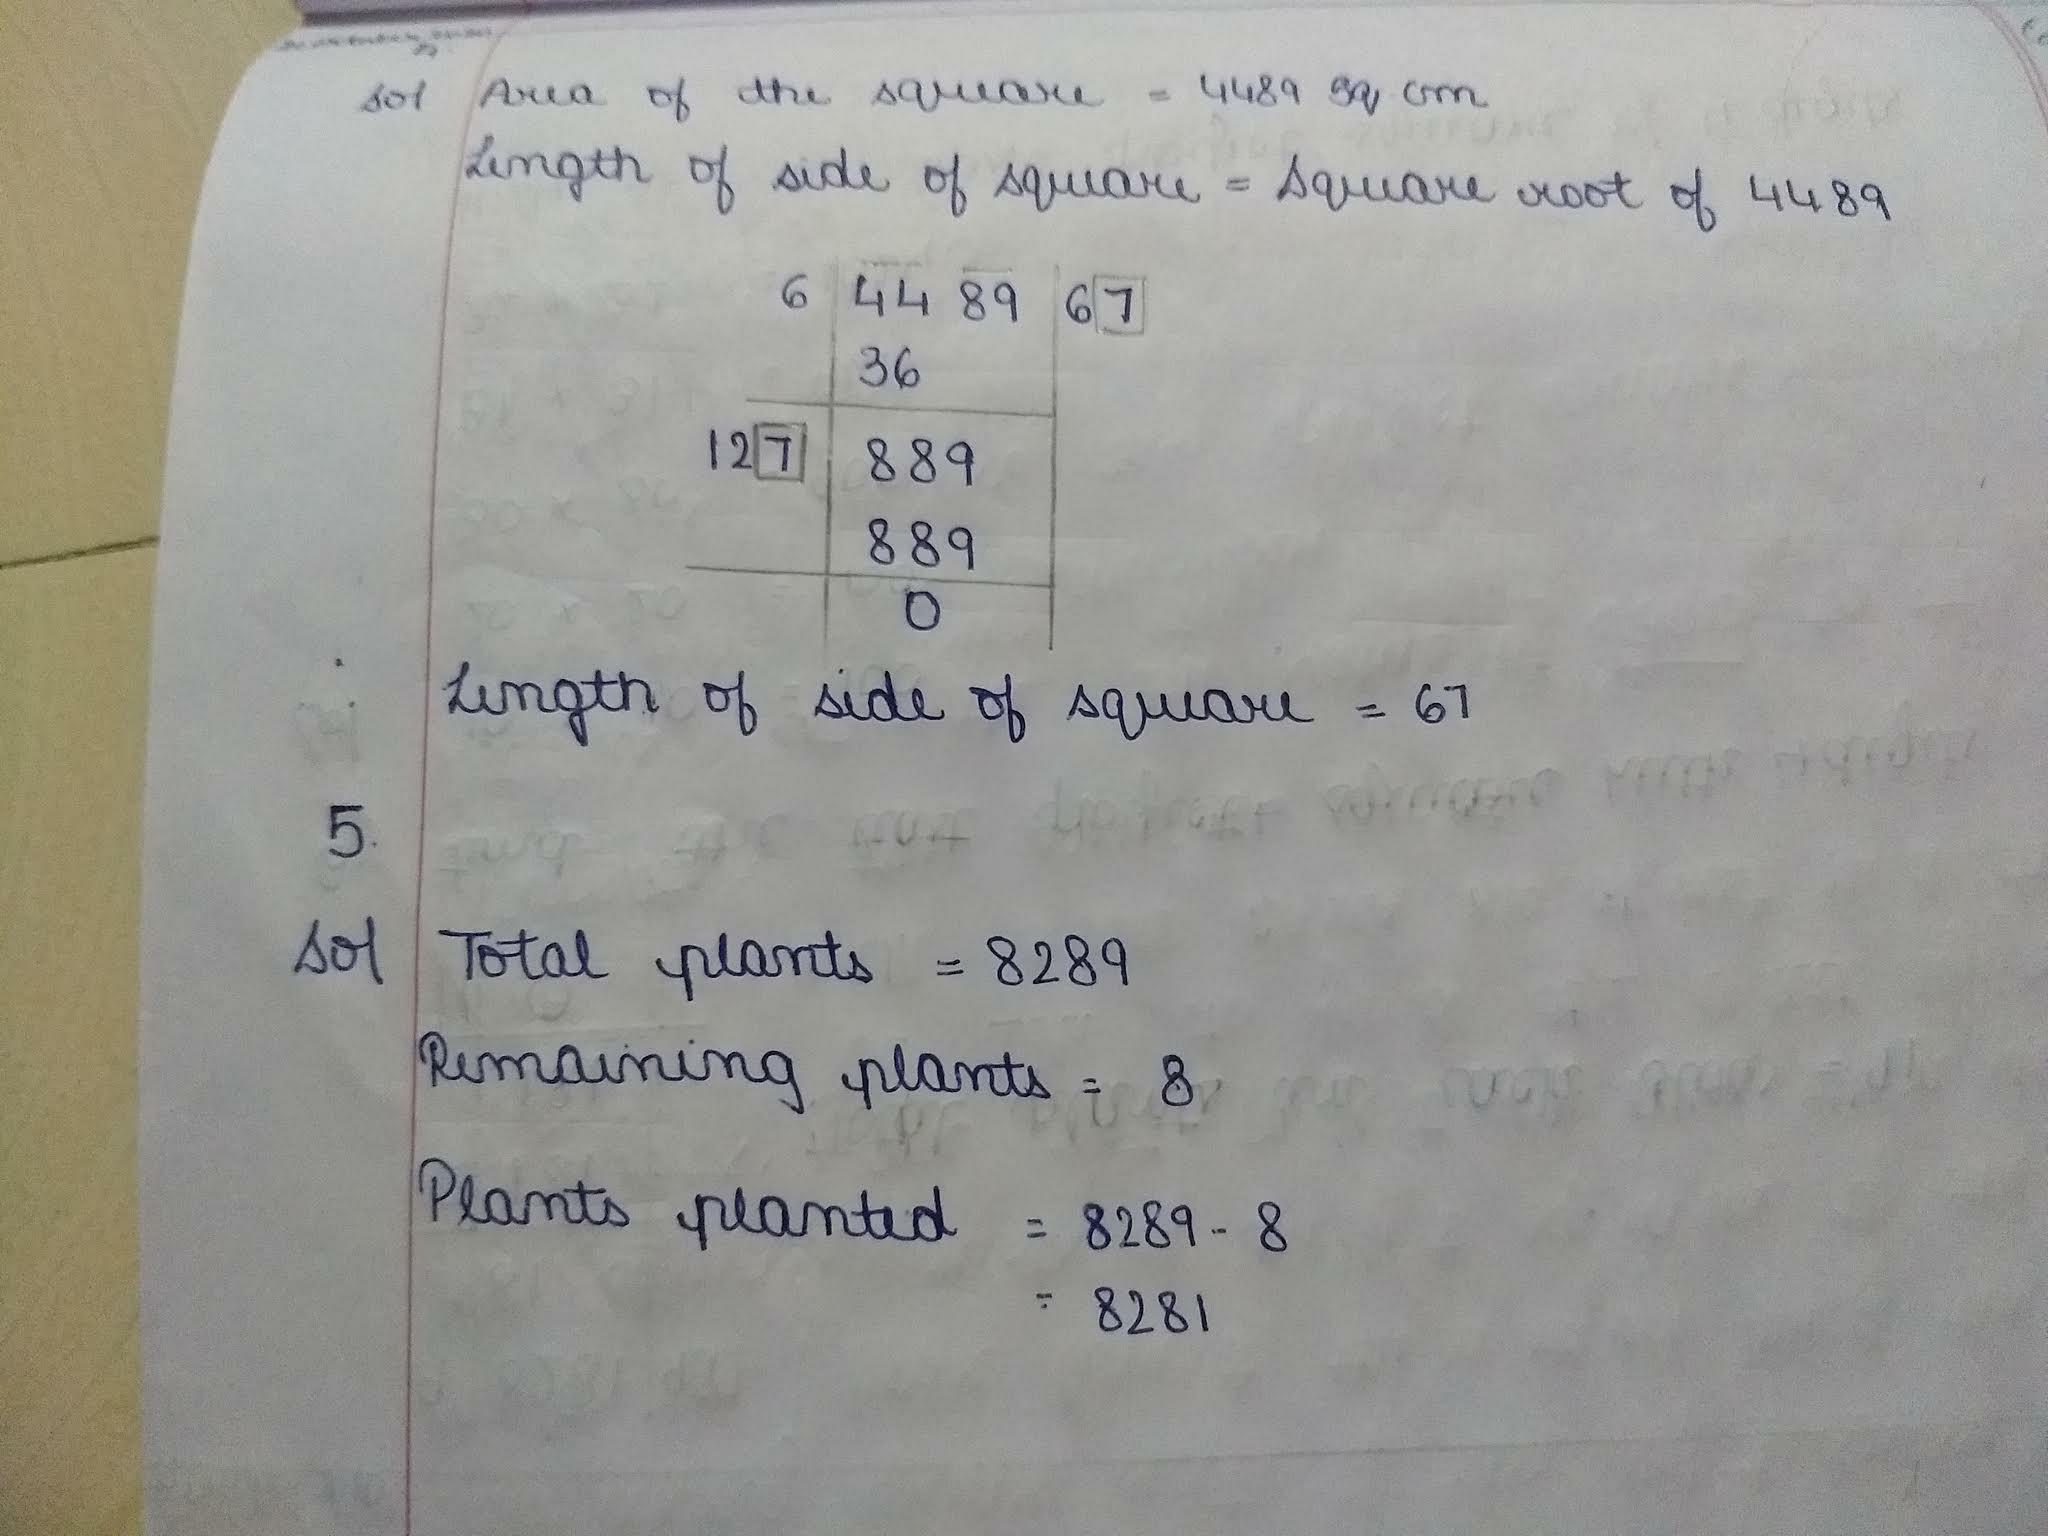 Sol Area of the square = 4489 sq cm
Length of side of square = Square root of 4489
6 44 89 67
36
127 889
889
0
Length of side of square = 67
5.
Sol Total plants = 8289
Remaining plants = 8
Plants planted = 8289 - 8
= 8281